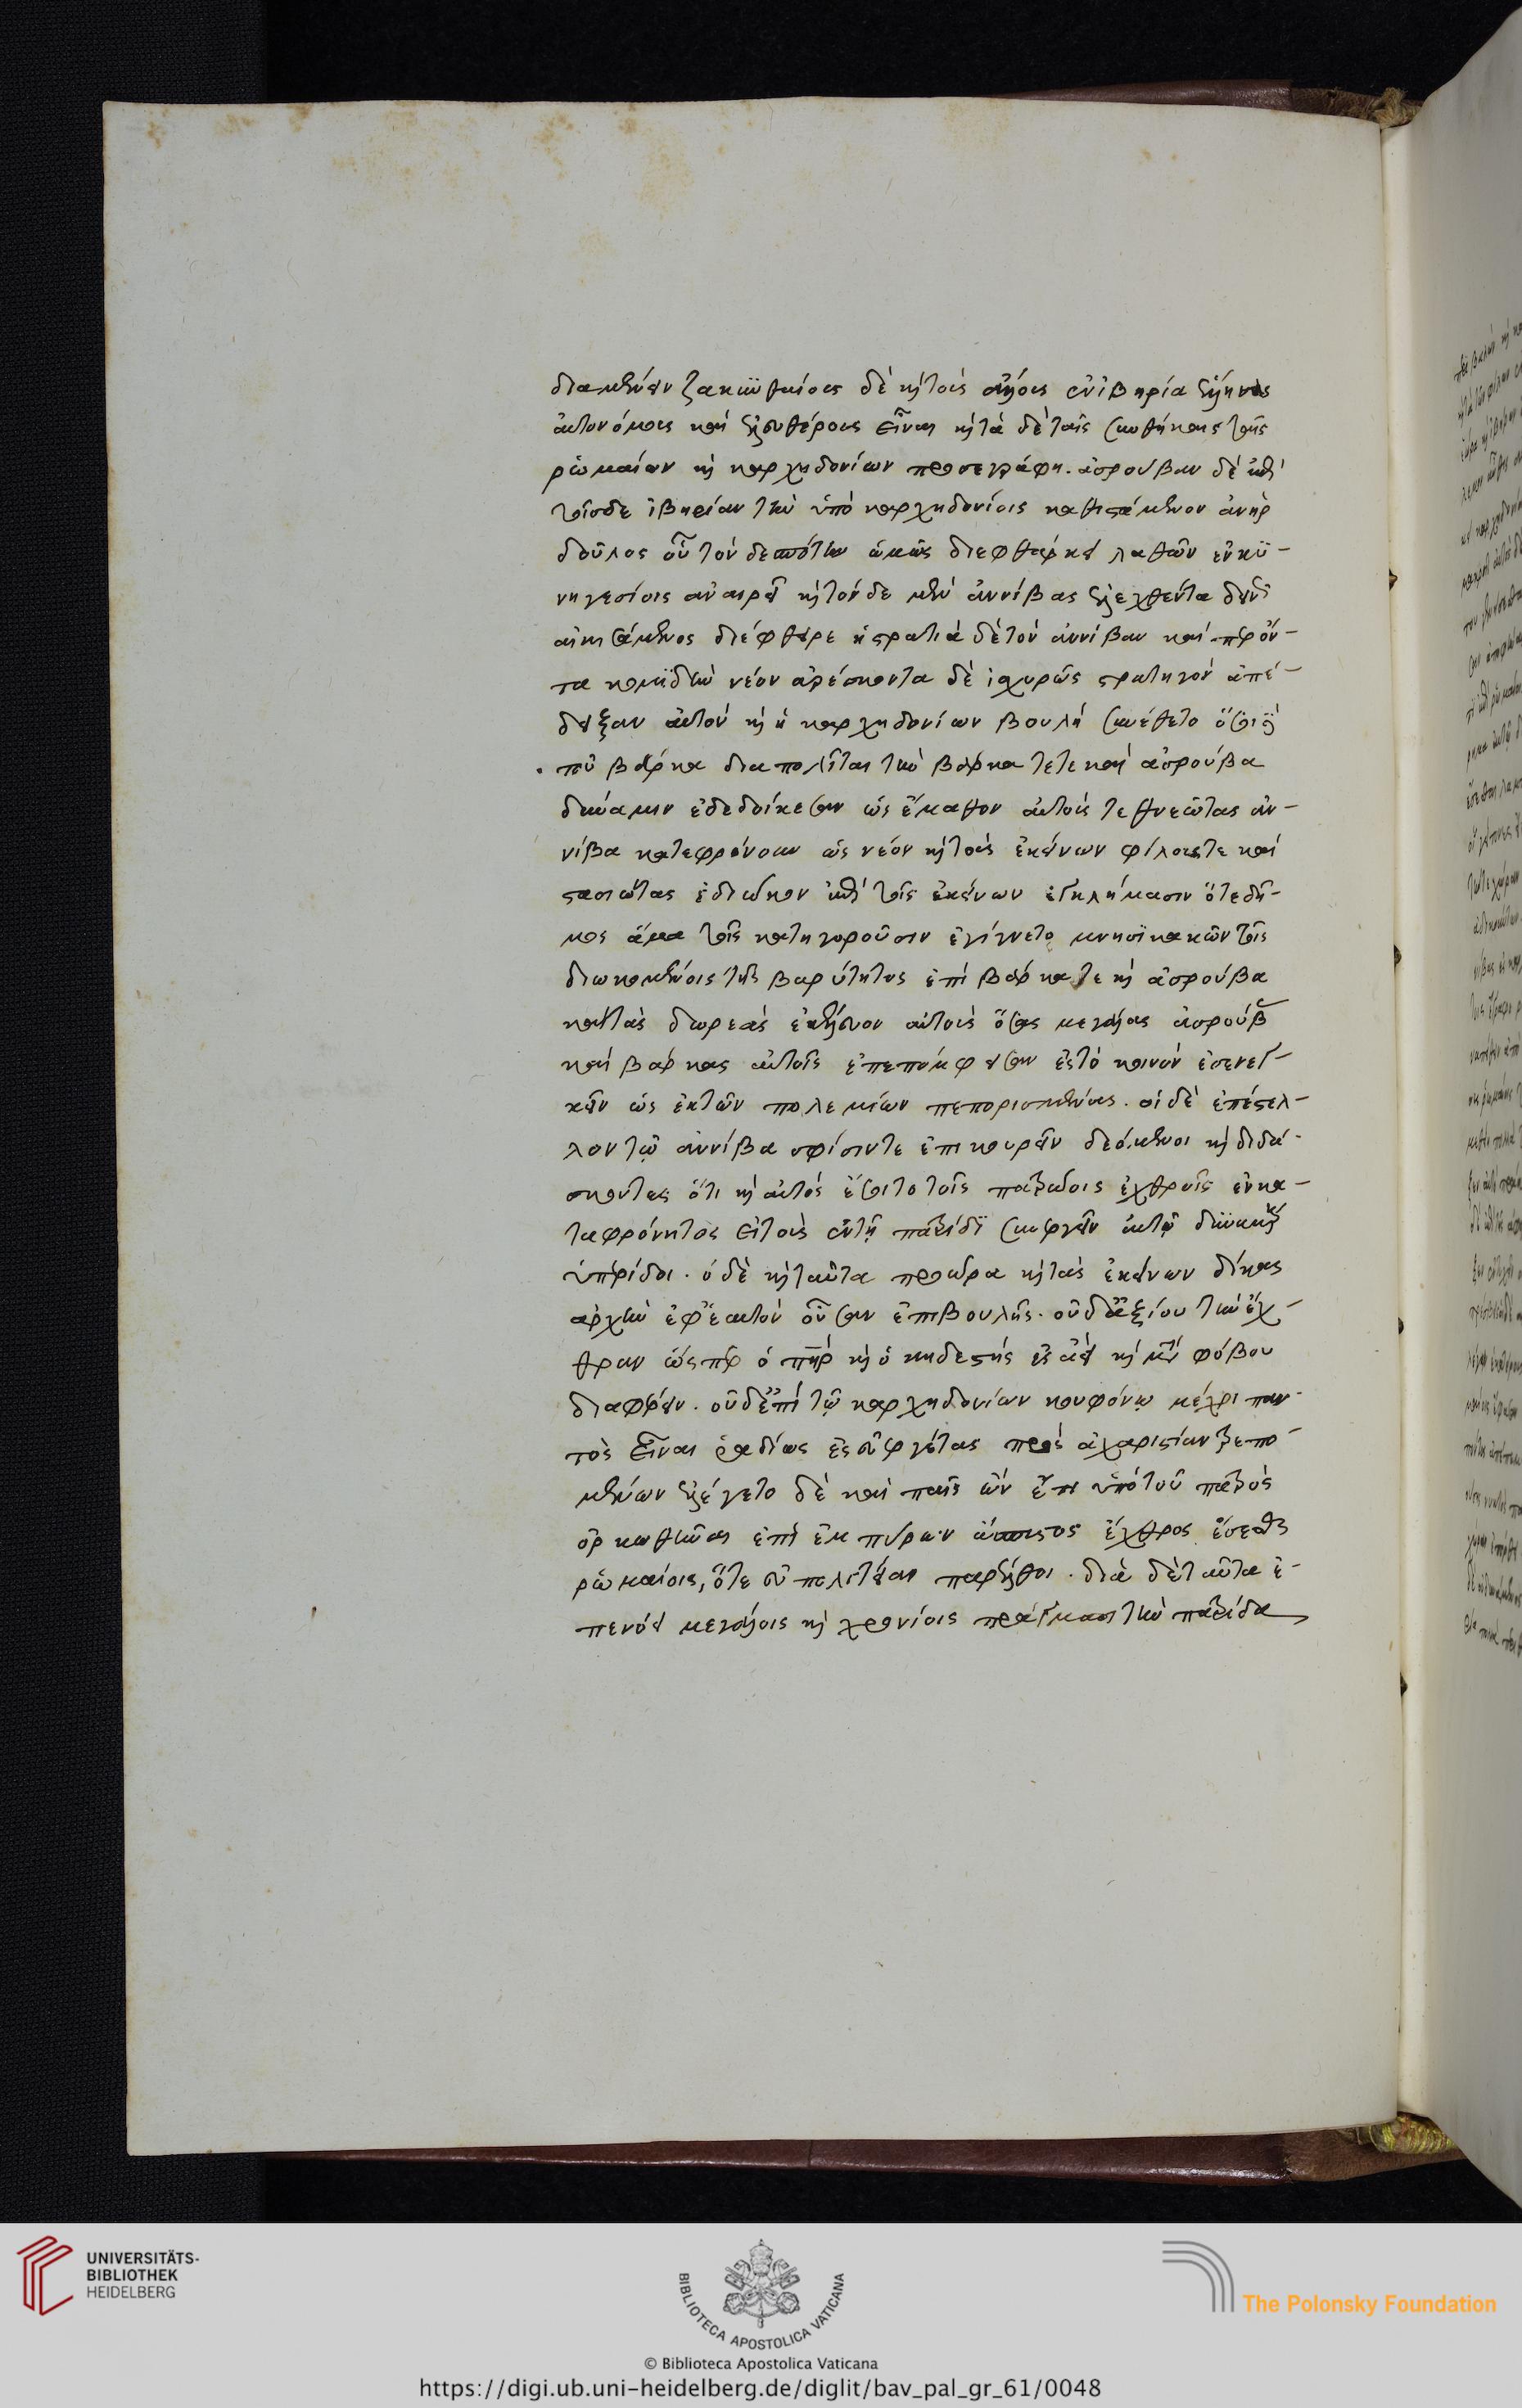 διαμένειν ζακυνθίους δὲ κὶ τοὺς ἄλλους ἐνιβηρία ἕλληνας
αὐτονόμους καὶ ἐλευθέρους εἶναι κὶ τάδε ταῖς συνθήκαις ταῖς
ῥωμαίων κὶ καρχηδονίων προσεγράφη. ἀσρούβαν δὲ ἐπὶ
τοῖσδε ἰβηρίαν τὴν ὑπὸ καρχηδονίοις καθιστάμενον ἀνὴρ
δοῦλος οὗ τὸν δεσπότην ὠμῶς διεφθάρκει λαθὼν ἐν κυ-
νηγεσίοις ἀναιρεῖ κὶ τόνδε μὲν ἀννίβας ἐλεγχθέντα δεινῶς
αἰκισάμενος διέφθειρε ἡ στρατιὰ δὲ τὸν ἀννίβαν καίπερ ὄν-
τα κομιδῇ νέον ἀρέσκοντα δὲ ἰσχυρῶς στρατηγὸν ἀπέ-
δειξαν αὐτὸν κὶ ἡ καρχηδονίων βουλὴ συνέθετο ὅσοι δὲ
τοῦ βάρκα διαπολῖται τὴν βάρκα τε τε καὶ ἀσρούβα
δύναμιν ἐδεδοίκεσαν ὡς ἔμαθον αὐτοὺς τεθνεῶτας ἀν-
νίβα κατεφρόνουν ὡς νέου κὶ τοὺς ἐκείνων φίλους τε καὶ
στασιώτας ἐδίωκον ἐπὶ τοῖς ἐκείνων ἐγκλήμασιν ὅτε δῆ-
μος ἅμα τοῖς κατηγοροῦσιν ἐγίγνετο μνησικακῶν τοῖς
διωκομένοις τῆς βαρύτητος ἐπὶ βάρκα τε κὶ ἀσρούβα
καὶ τὰς δωρεὰς ἐκέλευον αὐτοὺς ὅσας μεγάλας ἀσρούβ
καὶ βάρκας αὐτοῖς ἐπεπόμφεισαν ἐς τὸ κοινὸν ἐσενεγ-
κεῖν ὡς ἐκ τῶν πολεμίων πεπορισμένας. οἱ δὲ ἐπέστελ-
λον τῷ ἀννίβα σφίσιν τε ἐπικουρεῖν δεόμενοι κὶ διδά-
σκοντες ὅτι κὶ αὐτὸς ἔσοιτο τοῖς πατρώοις ἐχθροῖς εὐκα-
ταφρόνητος εἰ τοὺς ἐν τῇ πατρίδι συνεργεῖν αὐτῷ δυναμένους
ὑπερίδοι. ὁ δὲ κὶ ταῦτα προεώρα κὶ τὰς ἐκείνων δίκας
ἀρχὴν ἐφ' ἑαυτὸν οὖσαν ἐπιβουλῆς. οὐδ' ἠξίου τὴν ἔχ-
θραν ὥσπερ ὁ πηρ κὶ ὁ κηδεστὴς ἐς ἀεὶ κὶ μετὰ φόβου
διαφέρειν. οὐδ' ἐπὶ τῷ καρχηδονίων κουφόνῳ μέχρι παν-
τὸς εἶναι ῥαδίως ἐς εὐεργέτας πρὸς ἀχαριστίαν τρεπο-
μένων ἐλέγετο δὲ καὶ παῖς ὢν ἔτι ὑπὸ τοῦ πατρὸς
ὁρκωθῆναι ἐπὶ ἐμπύρων ἄπιστος ἐχθρὸς ἔσεσθαι
ῥωμαίοις, ὅτε εὖ πολιτείαν παρέλθοι. διὰ δὲ ταῦτα ἐ-
πενόει μεγάλοις κὶ χρονίοις πράγμασι τὴν πατρίδα
UNIVERSITÄTS-
BIBLIOTHEK
HEIDELBERG
BIBLIOTECA APOSTOLICA VATICANA
© Biblioteca Apostolica Vaticana
The Polonsky Foundation
https://digi.ub.uni-heidelberg.de/diglit/bav_pal_gr_61/0048